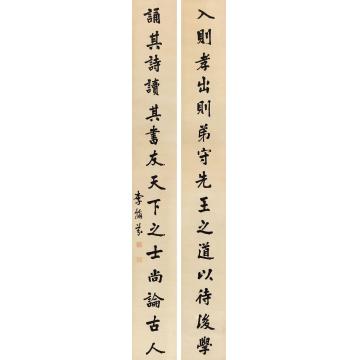 入則孝出則弟守先王之道以待後學
誦其詩讀其書友天下之士尚論古人
李瑞芬